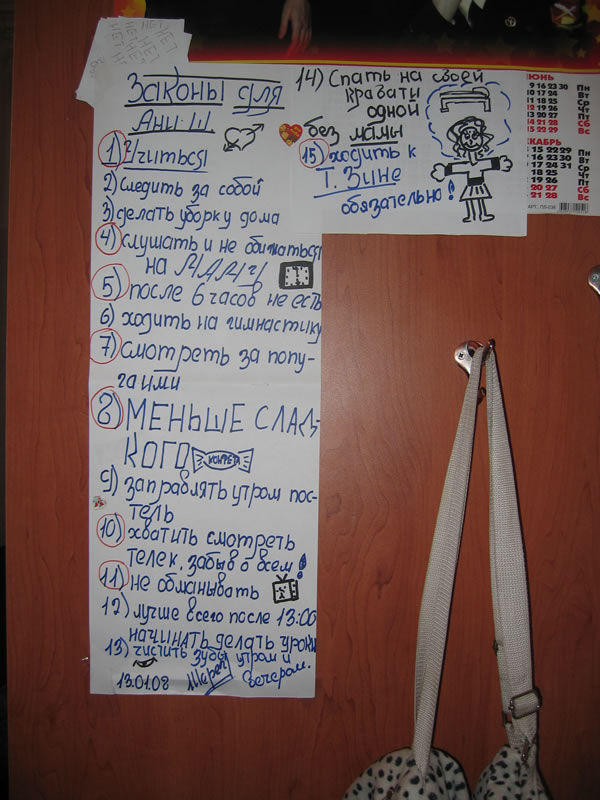 Законы для
Ани !!!
1) Учиться
2) следить за собой
3) делать уборку дома
4) слушать и не обижаться
на МАМУ
5) после 6 часов не есть
6) ходить на гимнастику
7) смотреть за попу-
гаими
8) МЕНЬШЕ СЛАД-
КОГО
КОНФЕТА
9) заправлять утром пос-
тель
10) хватить смотреть
телек, забыв о всём!
11) не обманывать
12) лучше всего после 13:00
начинать делать уроки
13) чистить зубы утром и
вечером.
13.01.08
14) Спать на своей
кравати
одной
без мамы
15) ходить к
Т. Зине
обязательно!
НЕТ
НЕТ
НЕТ
НЕТ
ИЮНЬ
9 16 23 30 Пн
10 17 24 Вт
11 18 25 Ср
12 19 26 Чт
13 20 27 Пт
14 21 28 Сб
15 22 29 Вс
ЕКАБРЬ
15 22 29 Пн
16 23 30 Вт
17 24 31 Ср
18 25 Чт
19 26 Пт
20 27 Сб
21 28 Вс